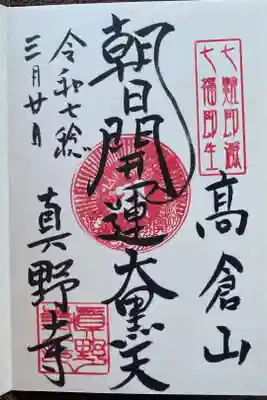 七難即滅
七福即生
高倉山
朝日開運大黒天
真野寺
令和七稔
三月廿日